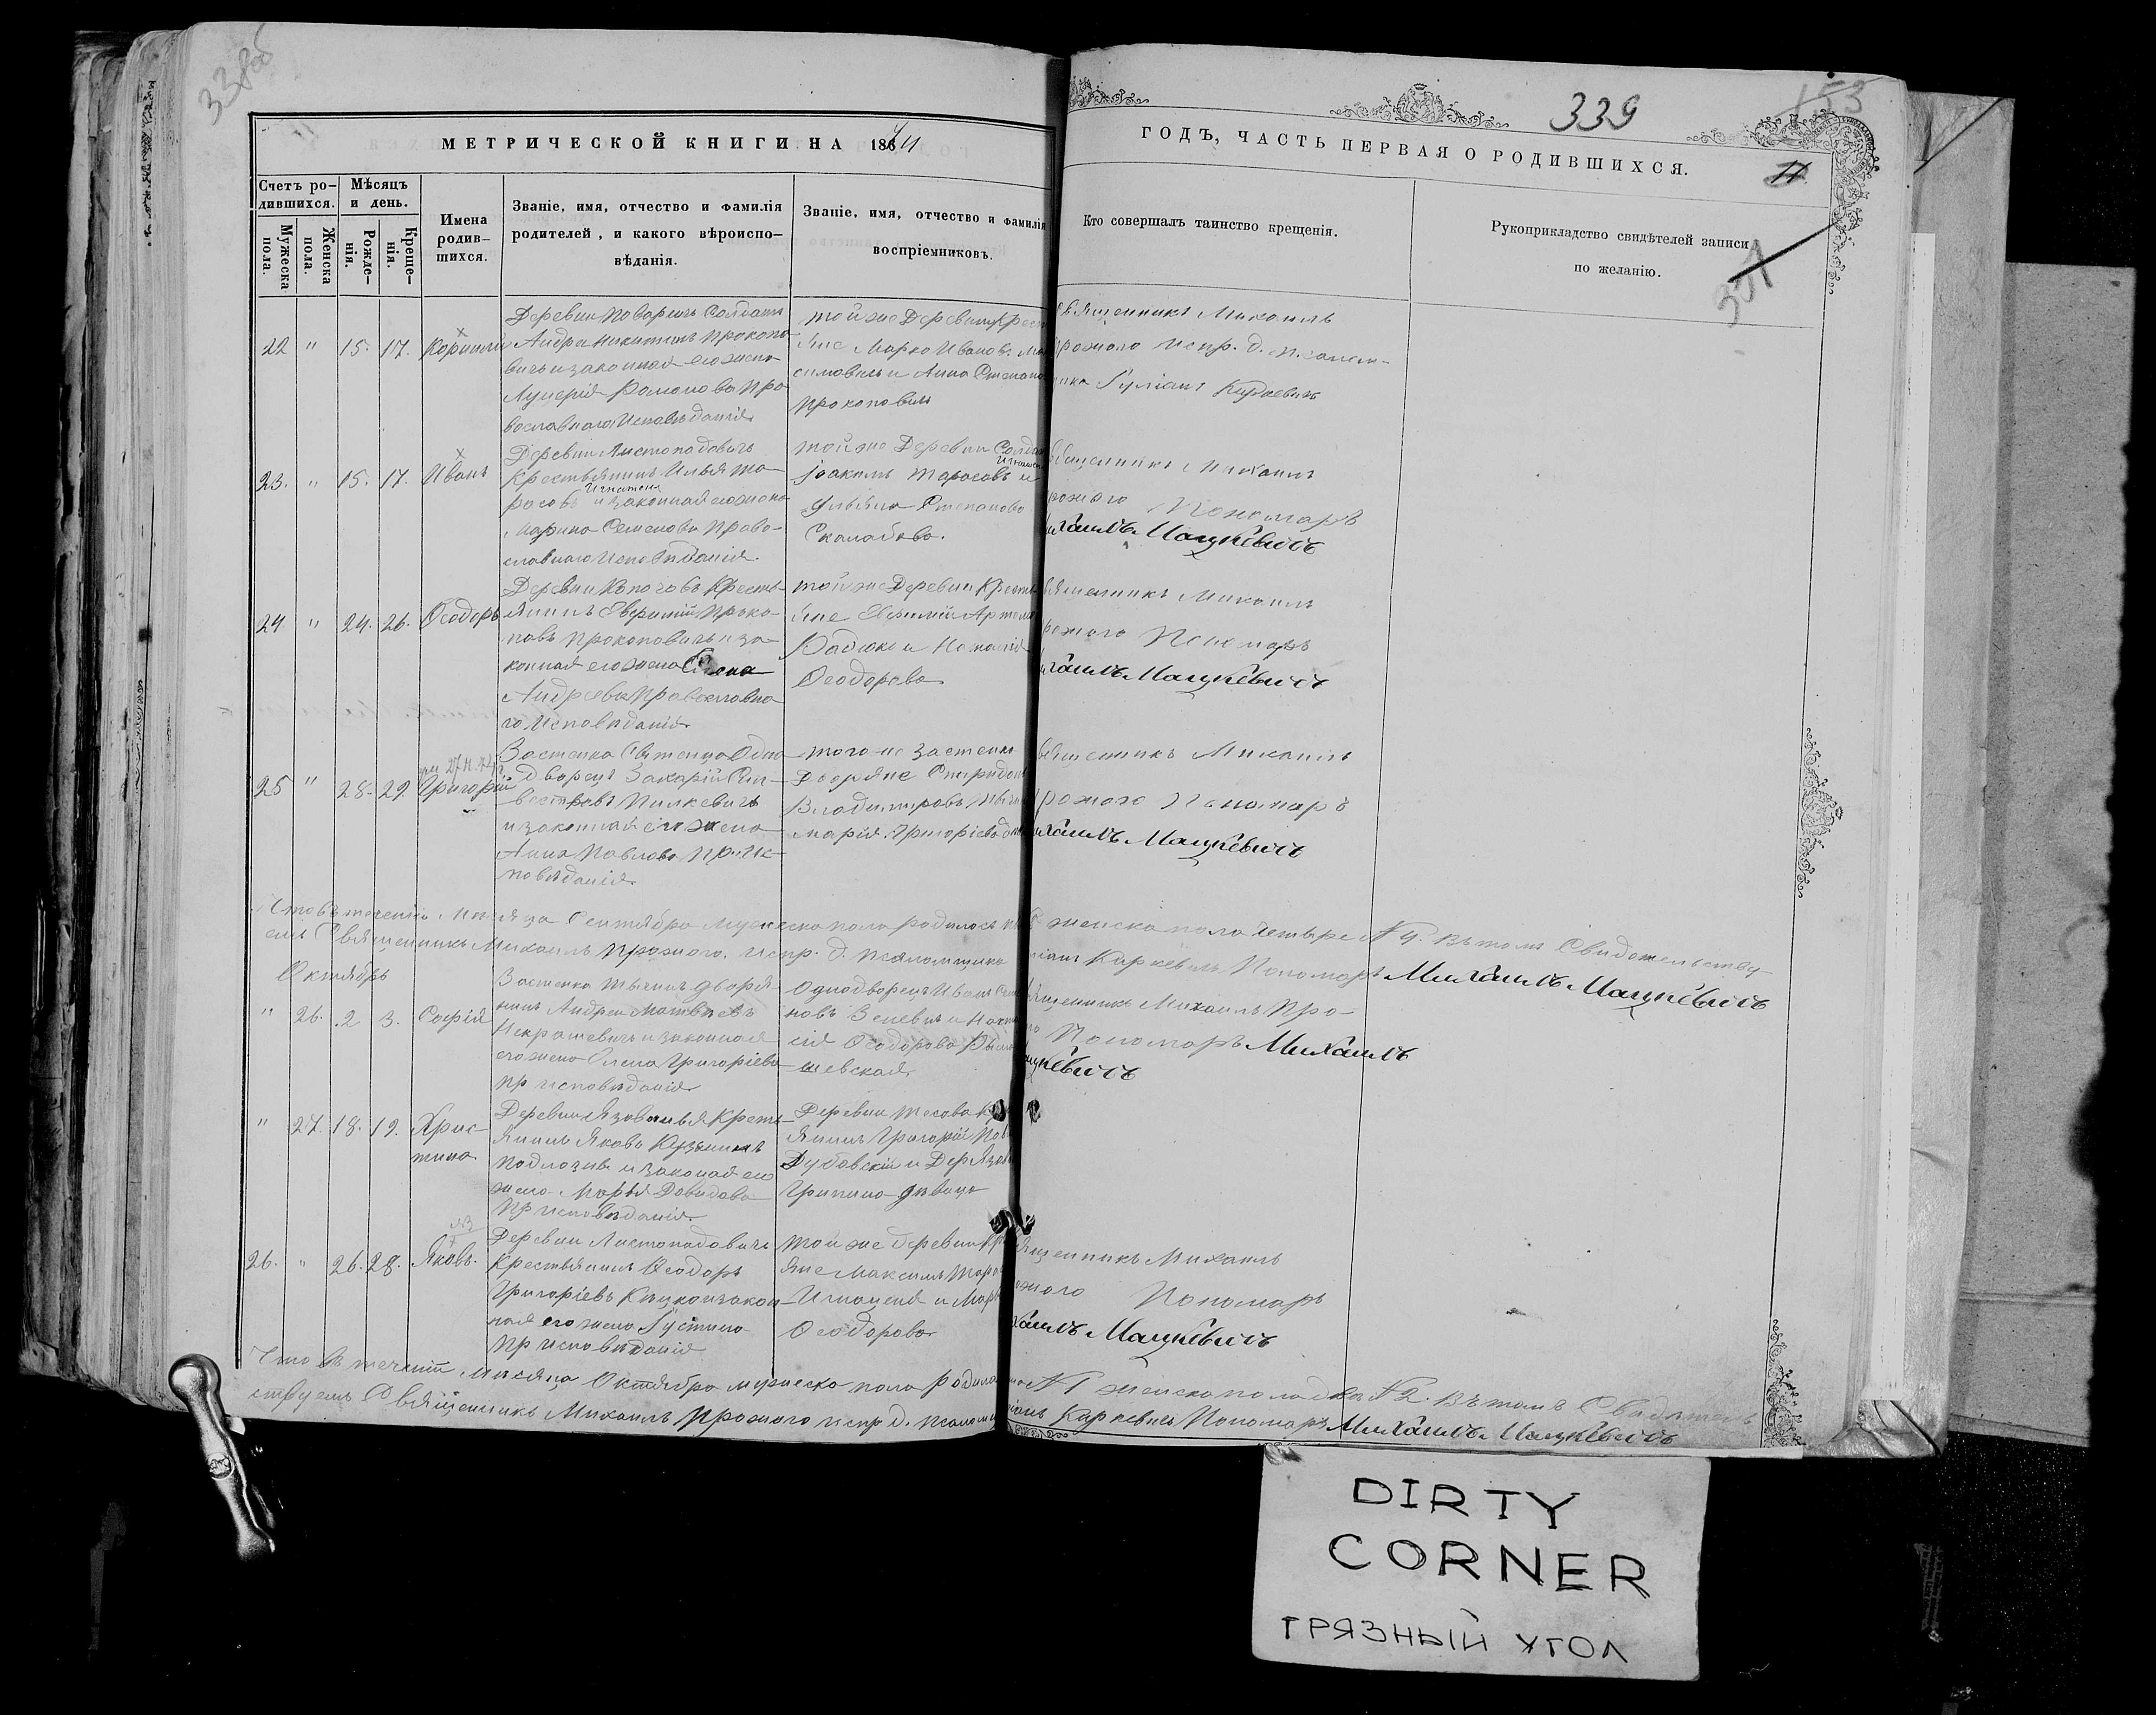 338об
339
153
11.
301
МЕТРИЧЕСКОЙ КНИГИ НА 1864
ГОДЪ, ЧАСТЬ ПЕРВАЯ О РОДИВШИХСЯ.
Счетъ ро-
дившихся.
Мужеска
пола.
Женска
пола.
Мѣсяцъ
и день.
Рожде-
нія.
Креще-
нія.
Имена
родив-
шихся.
Званіе, имя, отчество и фамилія
родителей, и какого вѣроиспо-
вѣданія.
Званіе, имя, отчество и фамилія
воспріемниковъ.
Кто совершалъ таинство крещенія.
Рукоприкладство свидѣтелей записи
по желанію.
22 " 15. 17. Корнилій
Деревни Поваричъ Солдатъ
Андрей Никитинъ Прокопо-
вичъ и законная его жена
Лукерія Романова Пра-
вославнаго Исповѣданія
той же Деревни Крест
яне Марко Ивановъ
симовичъ и Анна Степано
Прокоповичъ
Священникъ Михаилъ
Испр. д. псалом-
щика Іуліанъ Киркевичъ
23. " 15. 17. Иванъ
Деревни Листопадовичъ
Крестьянинъ Илья Та-
расовъ Игнатеня и законная его жена
Марина Семенова Право-
славнаго Исповѣданія
той же Деревни Солдатъ
Іоакимъ Тарасовъ Игнатен и
Ульяна Степанова
Скалабова.
Священникъ Михаилъ
Пономарь
Михаилъ Мацкевичъ
24 " 24. 26. Ѳеодоръ
Деревни Копачовъ Кресть-
янинъ Евфимій Проко-
повъ Прокоповичъ и за-
конная его жена Елена
Андреева Православна-
го Исповѣданія
той же Деревни Кресть
яне Евфимій Артемо
Бадюко и Наталія
Ѳеодорова
Священникъ Михаилъ
Пономарь
Михаилъ Мацкевичъ
25 " 28. 29. Григорій
Застенка Одно-
дворецъ Захарій Сил-
вестровъ Пилкевичъ
и законная его жена
Анна Павлова Пр. Ис-
повѣданія
того же Застенка
Дворяне Спиридонъ
Владиміровъ
Марія Григоріева
Священникъ Михаилъ
Пономарь
Михаилъ Мацкевичъ
Что въ теченіи Мѣсяца Сентября мужеска пола родилось женска пола четыре № 4. Въ томъ Свидѣтельству-
емъ Священникъ Михаилъ Прожого, испр. д. псаломщика Киркевичъ Пономарь Михаилъ Мацкевичъ
Октябрь
" 26. 2 3. Софія
Застенка Тычинъ Дворя-
нинъ Андрей Матвѣевъ
Некрашевичъ и законная
его жена Елена Григоріева
Пр исповѣданія
Однодворецъ Иванъ
новъ Зеневичъ и Настас
сія Ѳеодорова
шевская
Священникъ Михаилъ Про-
Пономарь Михаилъ
Мацкевичъ
" 27. 18. 19. Хрис-
тина
Деревни Язовилья Кресть-
янинъ Яковъ Кузьминъ
и законая его
жена Марья Давидова
Пр исповѣданія
Деревни Тесова
янинъ Григорій
Дубовскій и Дер
Грипина дѣвица
26. " 26. 28. Яковъ.
Деревни Листопадовичъ
Крестьянинъ Ѳеодоръ
Григоріевъ Кацко и закон-
ная его жена Іустина
Пр исповѣданія
той же деревни Кр
яне Максимъ Тара
Игнаценя и Мар
Ѳеодорова
Священникъ Михаилъ
Пономарь
Михаилъ Мацкевичъ
Что въ теченіи Мѣсяца Октября мужеска пола родился № 1 женска пола два № 2. Въ томъ Свидѣтель-
ствуемъ Священникъ Михаилъ Прожого испр. д. Киркевичъ Пономарь Михаилъ Мацкевичъ
DIRTY
CORNER
ГРЯЗНЫЙ УГОЛ